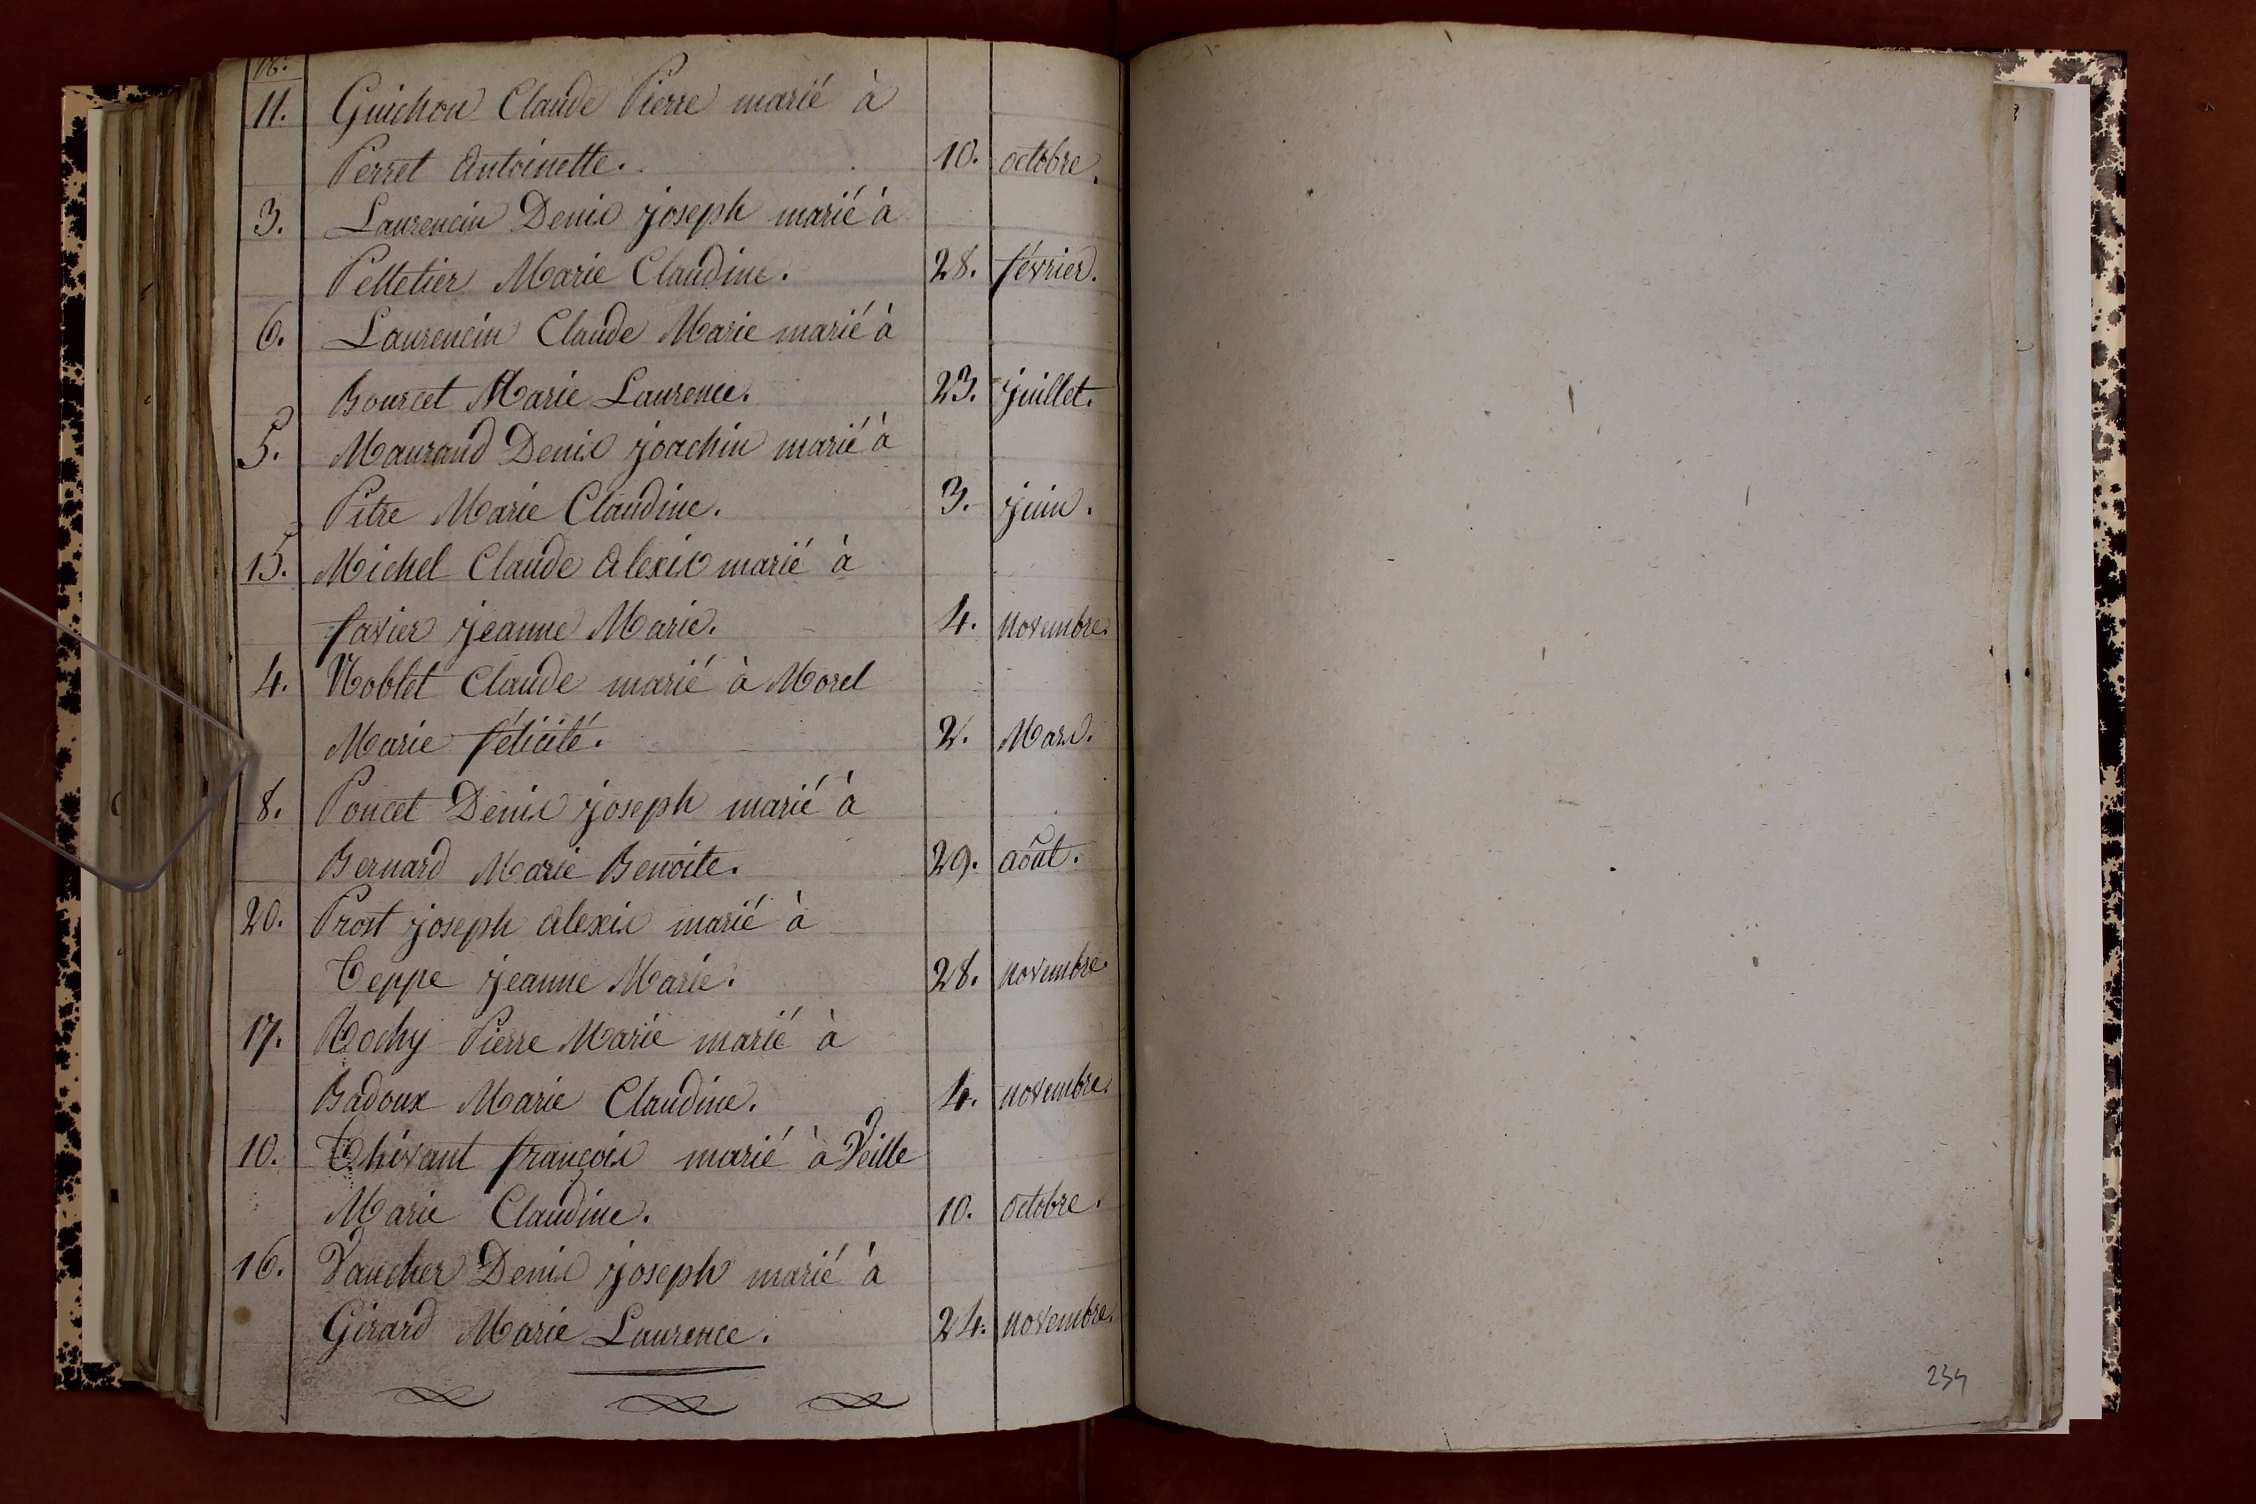 18.
11. Guichon Claude Pierre marié à
Perret Antoinette. 10. octobre.
3. Laurencin Denis joseph marié à
Pelletier Marie Claudine. 28. février.
6. Laurencin Claude Marie marié à
Bourcet Marie Laurence. 23. juillet.
5. Mauraud Denis joachin marié à
Pitre Marie Claudine. 3. juin.
15. Michel Claude Alexis marié à
favier jeanne Marie. 4. novembre.
4. Noblet Claude marié à Morel
Marie félicité. 2. Mars.
8. Poncet Denis joseph marié à
Bernard Marie Benoite. 29. août.
20. Prost joseph alexis marié à
Teppe jeanne Marie. 28. novembre.
17. Rochy Pierre Marie marié à
Badoux Marie Claudine. 4. novembre.
10. Thivant françois marié à Veille
Marie Claudine. 10. octobre.
16. Vaucher Denis joseph marié à
Girard Marie Laurence. 24. novembre.
234